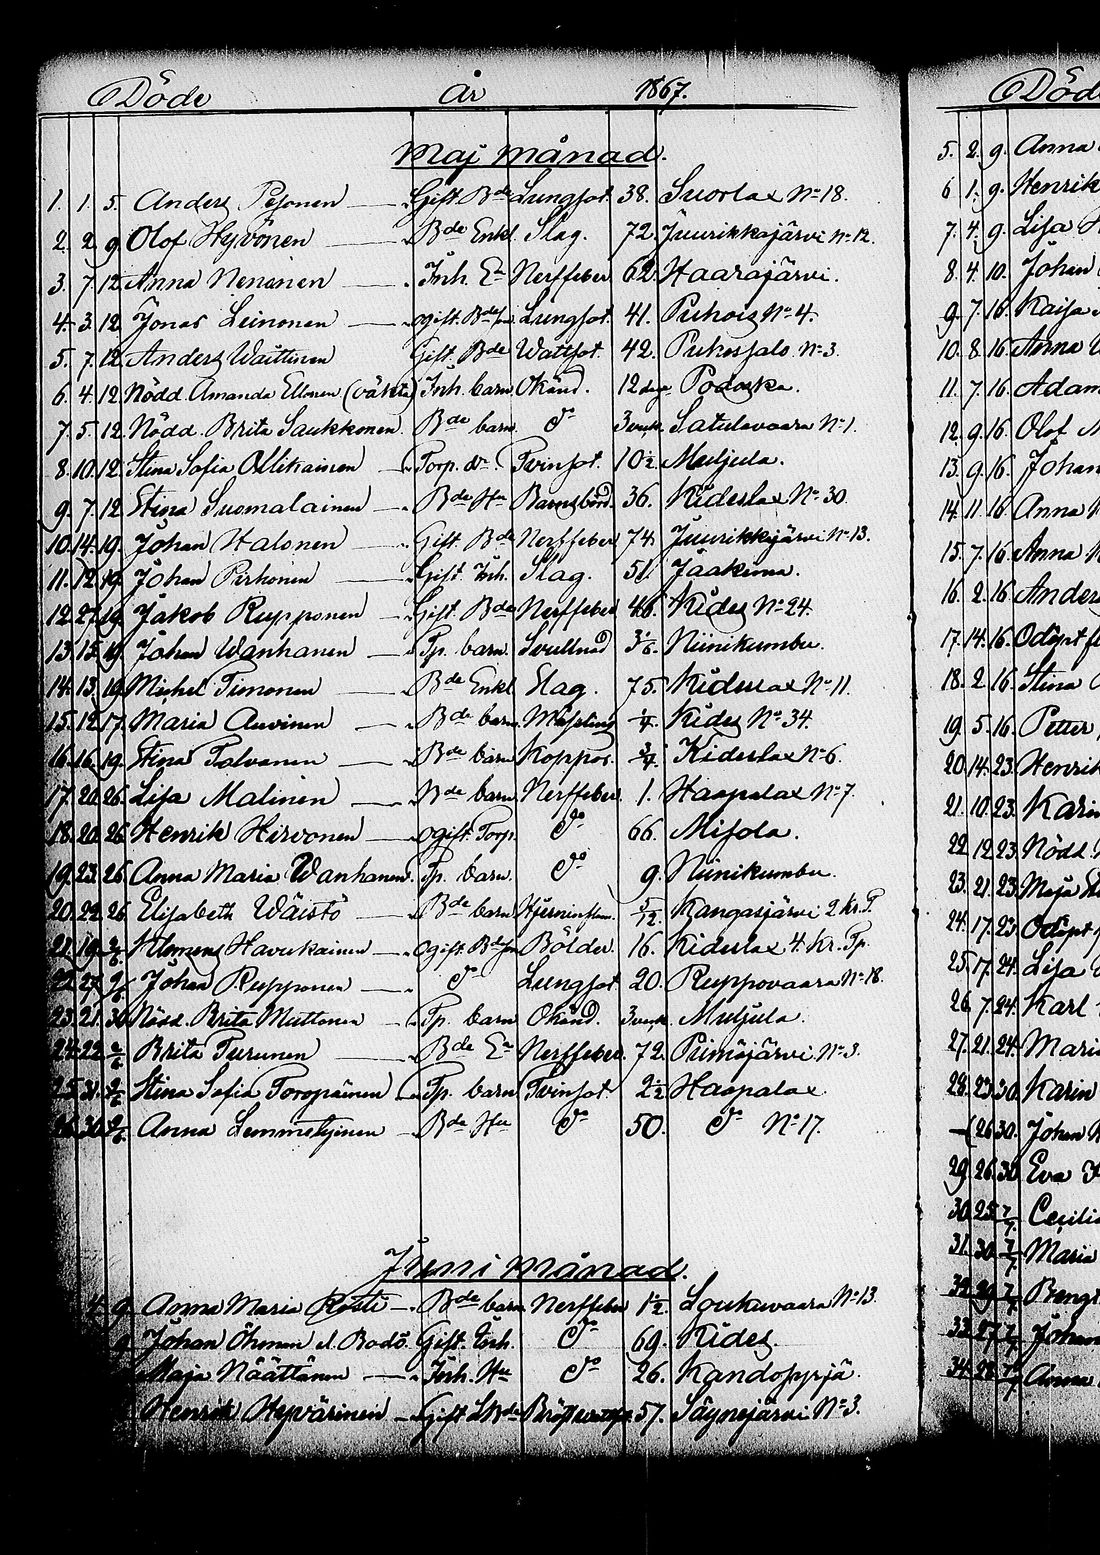 Döde År 1867.
Maj månad.
1. 1. 5. Anders Pesonen Gift. Bde Lungsot. 38. Suorlax No 18.
2. 2. 9. Olof Hyvönen Bde Enkl. Slag. 72. Juurikkajärvi No 12.
3. 7. 12. Anna Nenonen Inh. Ea Nerffeber 62. Haarajärvi.
4. 3. 12. Jonas Leinonen ogift. Bde Lungsot. 41. Puhois No 4.
5. 7. 12. Anders Waittinen Gift. Bde Wattsot. 42. Pukossalo No 3.
6. 4. 12. Nödd. Amanda Ellonen (oäkta) Inh. barn Okänd. 12 dag. Podoska.
7. 5. 12. Nödd. Brita Saukkonen. Bde barn. do 3 veck. Satulavaara No 1.
8. 10. 12. Stina Sofia Ollikainen Torp. dr. Tvinsot. 10½ Muljula.
9. 7. 12. Stina Suomalainen Bde Hu Barnsbörd. 36. Kideslax No 30
10. 14. 19. Johan Halonen Gift. Bde Nerffeber 74. Juurikkajärvi No 13.
11. 12. 19. Johan Pirhonen Gift. Inh. Slag. 51. Jaakima.
12. 27. 19. Jakob Rupponen Gift. Bde Nerffeber 46. Kides No 24.
13. 15. 19. Johan Wanhanen Tp. barn. Svullnad Niinikumbu.
14. 13. 19. Michel Timonen Bde Enkl. Slag. 75. Kideslax No 11.
15. 12. 17. Maria Auvinen Bde barn. Mässling Kides No 34.
16. 16. 19. Stina Talvanen Bde barn Koppor. Kideslax No 6.
17. 20. 26. Lisa Malinen Bde barn. Nerffeber. 1. Haapalax No 7.
18. 20. 26. Henrik Hirvonen ogift. Torp. do 66. Misola.
19. 23. 26. Anna Maria Wanhanen. Tp. barn. do 9. Niinikumbu.
20. 22. 26. Elisabeth Wäistö Bde barn Hjerninflam. 5/12. Kangasjärvi 2 Kr. T.
21. 19. Klemens Havukainen ogift. Bde Bölder. 16. Kideslax 4. Kr. Tp.
22. 27. Johan Rupponen do Lungsot. 20. Ruppovaara No 18.
23. 21. 30. Nödd. Brita Muttonen Tp. barn Okänd. 3 veck. Muljula.
24. 22. Brita Turunen Bde Ea Nerffeber. 72. Piimäjärvi No 3.
25. 31. Stina Sofia Toropainen Tp. barn. Tvinsot. 2½ Haapalax.
26. 30. Anna Lemmetyinen Bde Hu do 50. do No 17.
Juni månad.
4. 9. Anna Maria Rosti Bde barn Nerffeber 1½. Loukuvaara No 13
9. Johan Öhman el. Bodö. Gift. Inh. do 69. Kides.
Maja Näättänen Inh. Hu do 26. Kandosyrjä.
Henrik Hyvärinen Gift 57. Säynejärvi No 3.
Död
5. 2. 9. Anna
6. 1. 9. Henrik
7. 4. 9. Lisa
8. 4. 10. Johan
9. 7. 16. Kaisa
10. 8. 16. Anna
11. 7. 16. Adam
12. 9. 16. Olof
13. 9. 16. Johan
14. 11. 16. Anna
15. 7. 16. Anna
16. 2. 16. Anders
17. 14. 16. Odöpt
18. 2. 16. Stina
19. 5. 16. Petter
20. 14. 23. Henrik
21. 10. 23. Karin
22. 12. 23. Nödd.
23. 21. 23. Maja
24. 17. 23. Odöpt
25. 17. 24. Lisa
26. 7. 24. Karl
27. 21. 24. Maria
28. 23. 30. Karin
26. 30. Johan
29. 26. 30. Eva
30. 25. Cecilia
31. 30. Maria
32. 29. Bengt
33. 27. Johan
34. 28. Anna